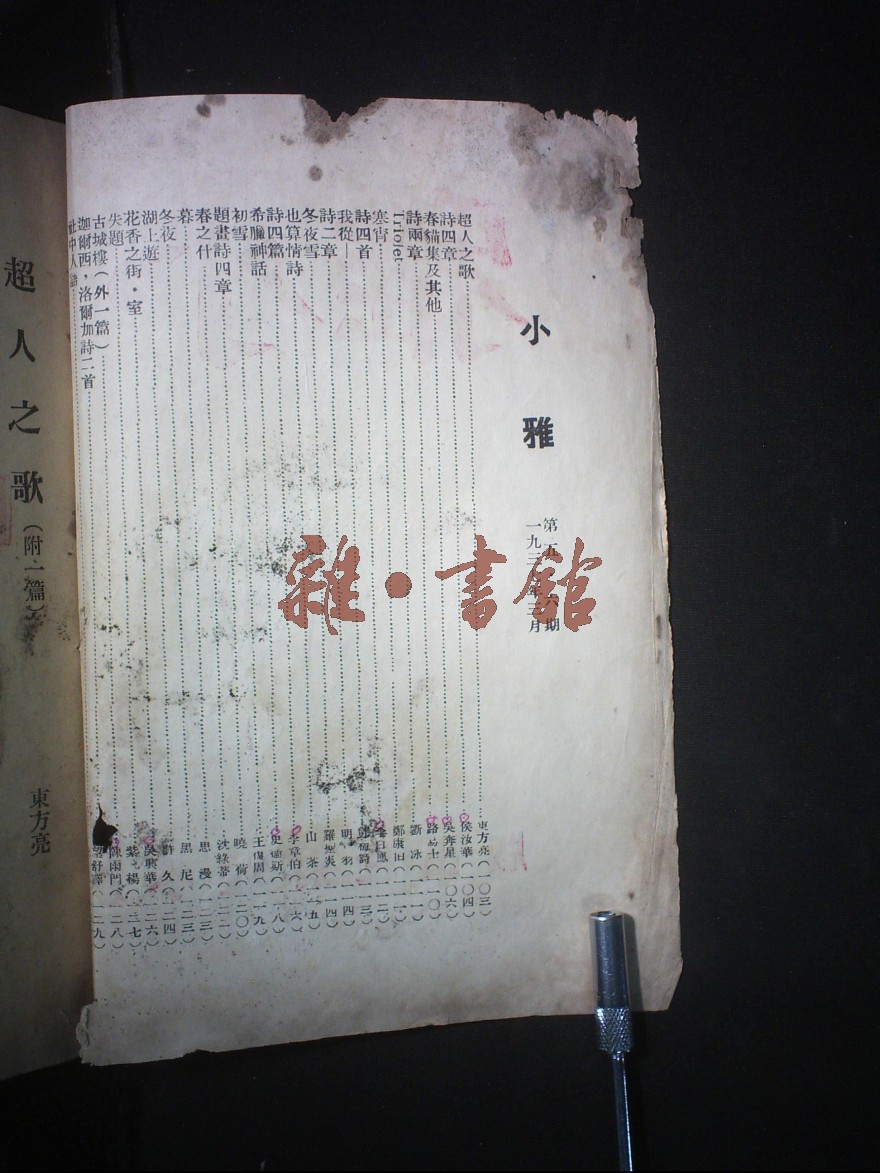 小雅
第五 六期
一九三 年三月
超人之歌 東方亮(一〇三)
詩四章 侯汝華(一〇四)
春貓集及其他 吳奔星(一〇六)
詩兩章 路易士(一一〇)
Triolet 冰(一一一)
寒宵 鄭康伯(一一一)
詩四首 (一一二)
我從— (一一三)
詩二章 明羽(一一四)
冬夜雪 羅 炎(一一四)
也算情詩 山茶(一一五)
詩四篇 李章伯(一一六)
希臘神話 史 (一一八)
初雪 王 周(一一九)
題畫詩四章 曉荷(一二〇)
春之什 沈綠蒂(一二二)
暮 思漫(一二三)
冬夜 黑尼(一二三)
湖上遊 許久(一二四)
花香之街・室 吳興華(一二六)
失題 紫楊(一二七)
古城樓(外一篇) 陳雨門(一二八)
迦爾西,洛爾加詩二首 望舒譯(一二九)
社中人語
超人之歌(附一篇)
東方亮
雜・書館